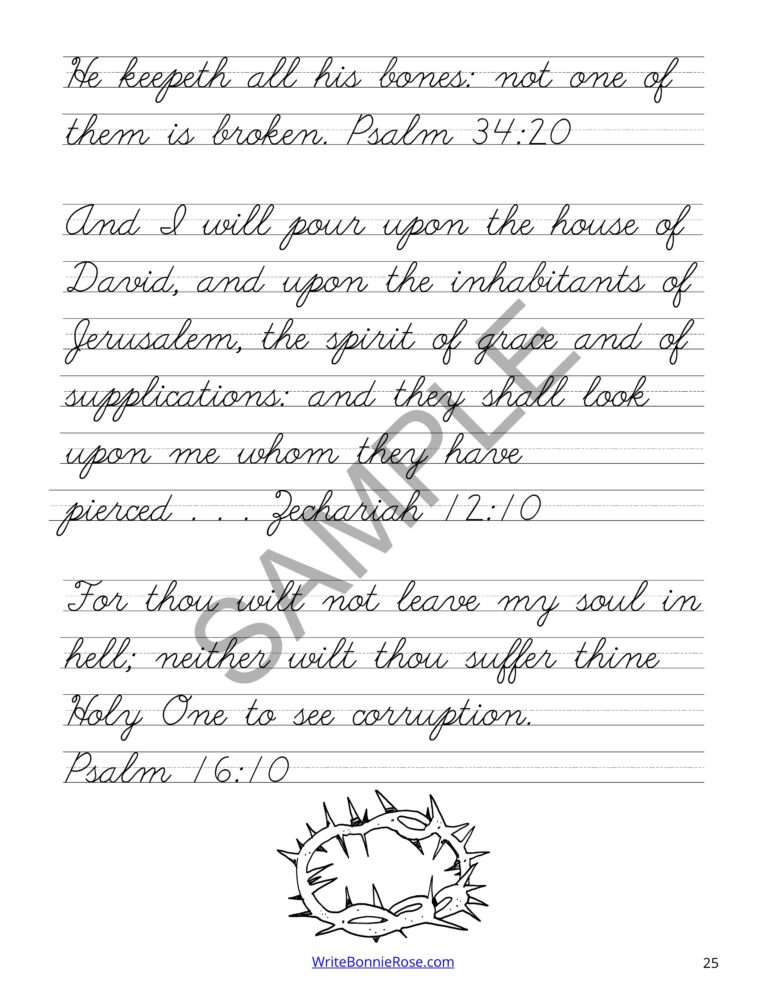 He keepeth all his bones: not one of
them is broken. Psalm 34:20
And I will pour upon the house of
David, and upon the inhabitants of
Jerusalem, the spirit of grace and of
supplications: and they shall look
upon me whom they have
pierced . . . Zechariah 12:10
For thou wilt not leave my soul in
hell; neither wilt thou suffer thine
Holy One to see corruption.
Psalm 16:10
SAMPLE
WriteBonnieRose.com
25